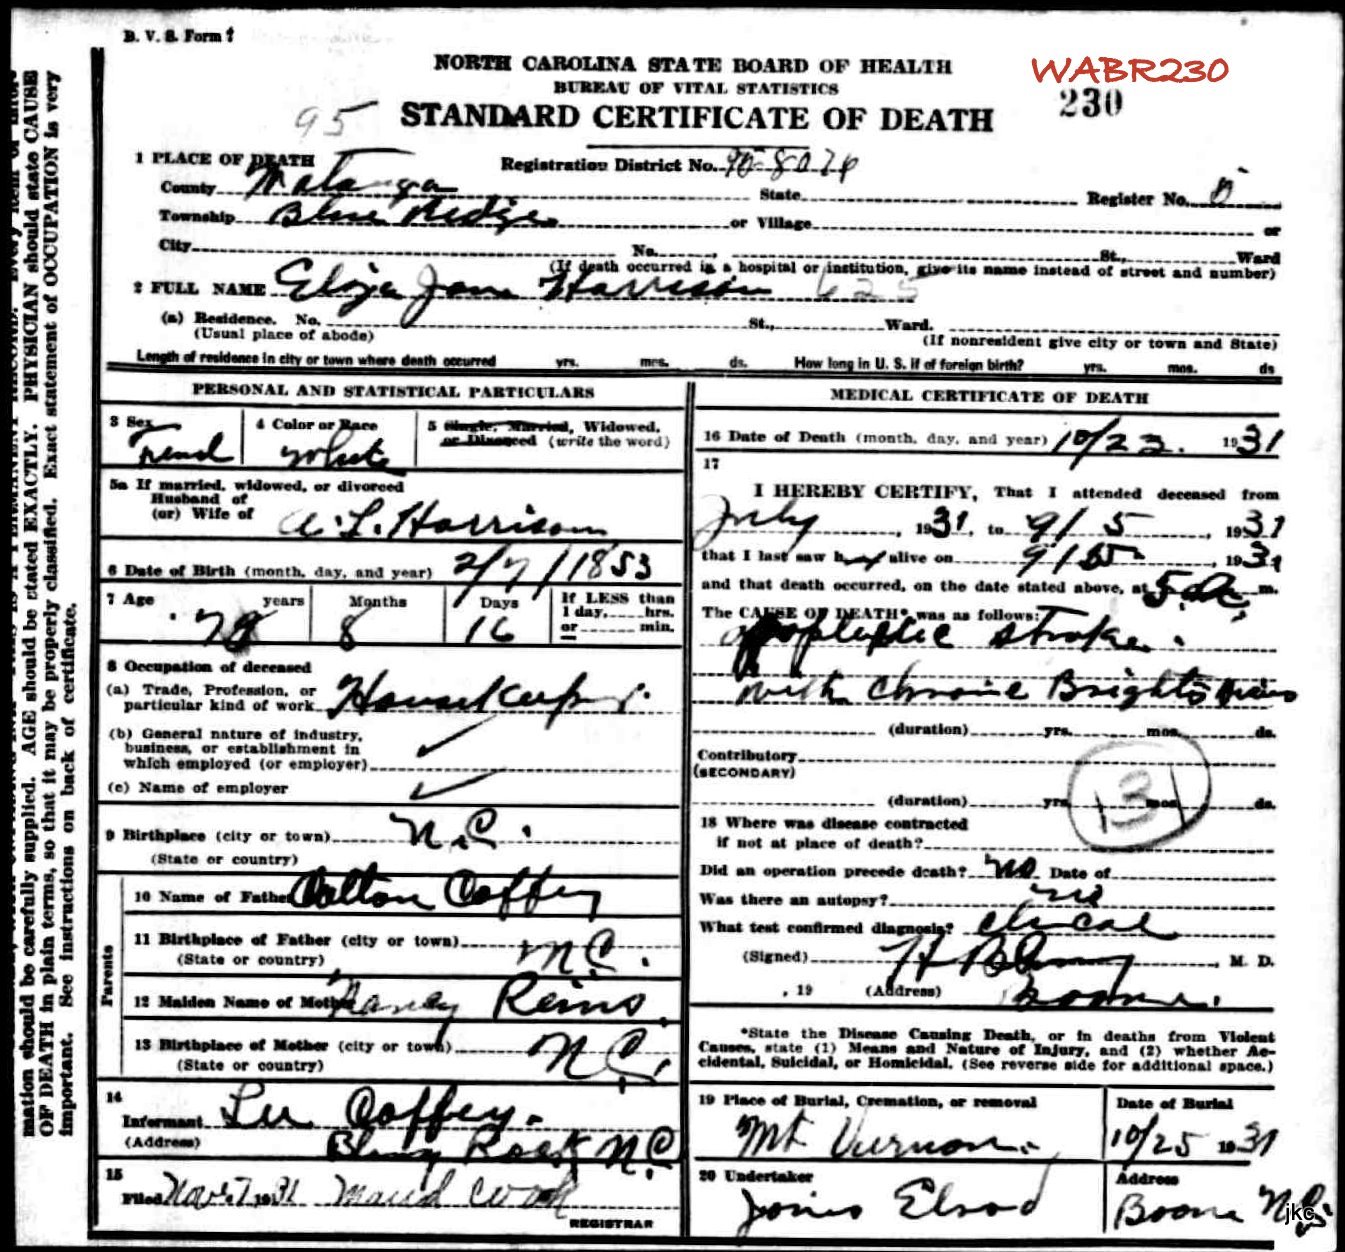 B. V. S. Form 1
NORTH CAROLINA STATE BOARD OF HEALTH
WABR230
BUREAU OF VITAL STATISTICS
230
95
STANDARD CERTIFICATE OF DEATH
1 PLACE OF DEATH
Registration District No. 95-8076
County Watauga State Register No. 8
Township Blue Ridge or Village or
City No. St., Ward
(If death occurred in a hospital or institution, give its name instead of street and number)
2 FULL NAME Eliza Jane Harrison 625
(a) Residence. No. St., Ward.
(Usual place of abode) (If nonresident give city or town and State)
Length of residence in city or town where death occurred yrs. mos. ds. How long in U. S. if of foreign birth? yrs. mos. ds
PERSONAL AND STATISTICAL PARTICULARS
3 Sex 4 Color or Race 5 Single, Married, Widowed, or Divorced (write the word)
Femal White
5a If married, widowed, or divorced
Husband of
(or) Wife of L. Harrison
6 Date of Birth (month, day, and year) 2/7/1853
7 Age years Months Days If LESS than
1 day, hrs.
or min.
78 8 16
8 Occupation of deceased
(a) Trade, Profession, or
particular kind of work Housekeeper
(b) General nature of industry,
business, or establishment in
which employed (or employer)
(c) Name of employer
9 Birthplace (city or town) N.C.
(State or country)
Parents
10 Name of Father Colton Coffey
11 Birthplace of Father (city or town) N.C.
(State or country)
12 Maiden Name of Mother Nancy Reins
13 Birthplace of Mother (city or town) N.C.
(State or country)
14
Informant Lee Coffey.
(Address) Blowing Rock N.C
15
Filed Nov. 7, 1931 Maud Cook
REGISTRAR
MEDICAL CERTIFICATE OF DEATH
16 Date of Death (month, day, and year) 10/23. 1931
17
I HEREBY CERTIFY, That I attended deceased from
July, 1931, to 9/5, 1931
that I last saw her alive on 9/5, 1931
and that death occurred, on the date stated above, at 5 a. m.
The CAUSE OF DEATH* was as follows:
apoplectic stroke.
with chronic Brights
(duration) yrs. mos. ds.
Contributory
(SECONDARY)
(duration) yrs. mos. ds.
131
18 Where was disease contracted
if not at place of death?
Did an operation precede death? no Date of
Was there an autopsy? no
What test confirmed diagnosis? clinical
(Signed) H B , M. D.
, 19 (Address) Boone.
*State the Disease Causing Death, or in deaths from Violent
Causes, state (1) Means and Nature of Injury, and (2) whether Ac-
cidental, Suicidal, or Homicidal. (See reverse side for additional space.)
19 Place of Burial, Cremation, or removal Date of Burial
Mt Vernon. 10/25 1931
20 Undertaker Address
Elrod Boone N.C.
jkc
mation should be carefully supplied. AGE should be stated EXACTLY. PHYSICIAN should state CAUSE
OF DEATH in plain terms, so that it may be properly classified. Exact statement of OCCUPATION is very
important. See instructions on back of certificate.